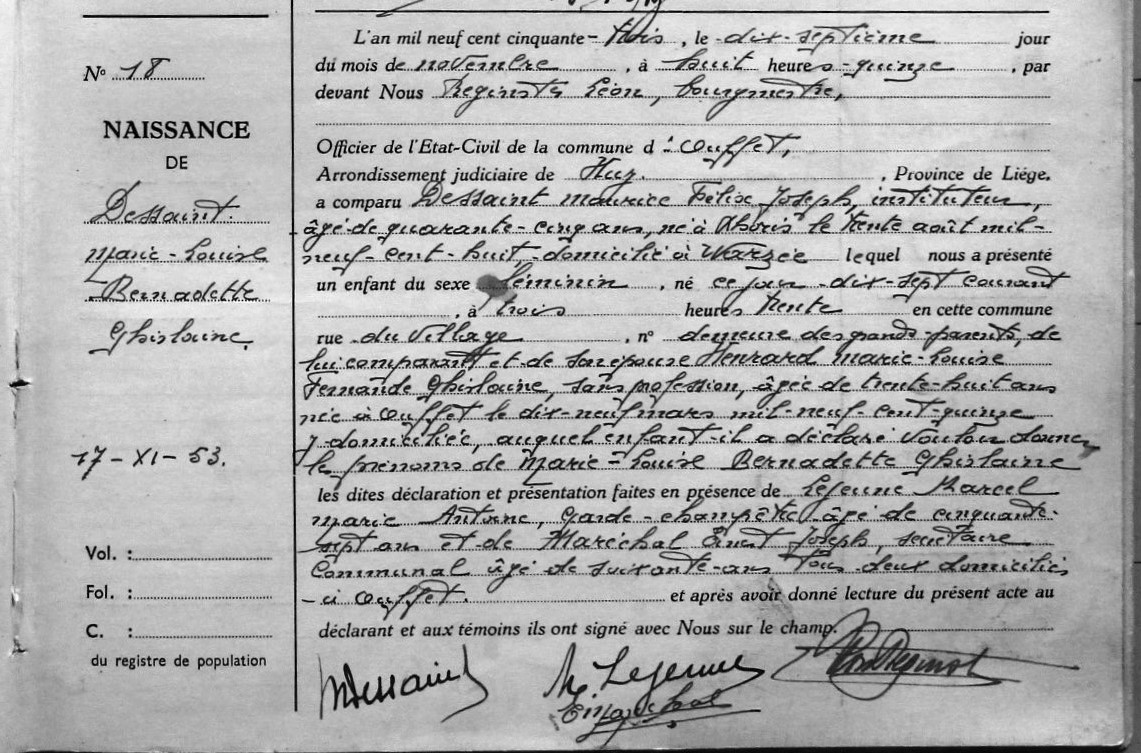 L'an mil neuf cent cinquante-trois, le dix-septième jour
du mois de novembre, à huit heures quinze, par
devant Nous Reginster Léon, bourgmestre,
Officier de l'Etat-Civil de la commune d'Ouffet,
Arrondissement judiciaire de Huy, Province de Liége.
a comparu Dessaint Maurice Félix Joseph, instituteur,
âgé de quarante-cinq ans, né à le trente août mil-
neuf-cent-huit, domicilié à Warzée lequel nous a présenté
un enfant du sexe féminin, né ce jour dix-sept courant
, à trois heures trente en cette commune
rue du Village, n° demeure des grands-parents, de
lui comparant et de son épouse Henrard Marie-Louise
Fernande Ghislaine, sans profession, âgée de trente-huit ans
née à Ouffet le dix-neuf mars mil-neuf-cent-quinze
y domiciliée, auquel enfant il a déclaré vouloir donner
les prénoms de Marie-Louise Bernadette Ghislaine
les dites déclaration et présentation faites en présence de Lejeune Marcel
Marie Antoine, Garde-champêtre âgé de cinquante-
sept ans et de Maréchal Ernest Joseph, secrétaire
Communal âgé de soixante-ans tous deux domiciliés
à Ouffet. et après avoir donné lecture du présent acte au
déclarant et aux témoins ils ont signé avec Nous sur le champ.
MDessaint
M. Lejeune
E. Maréchal
N° 18
NAISSANCE
DE
Dessaint.
Marie-Louise
Bernadette
Ghislaine.
17-XI-53.
Vol. :
Fol. :
C. :
du registre de population